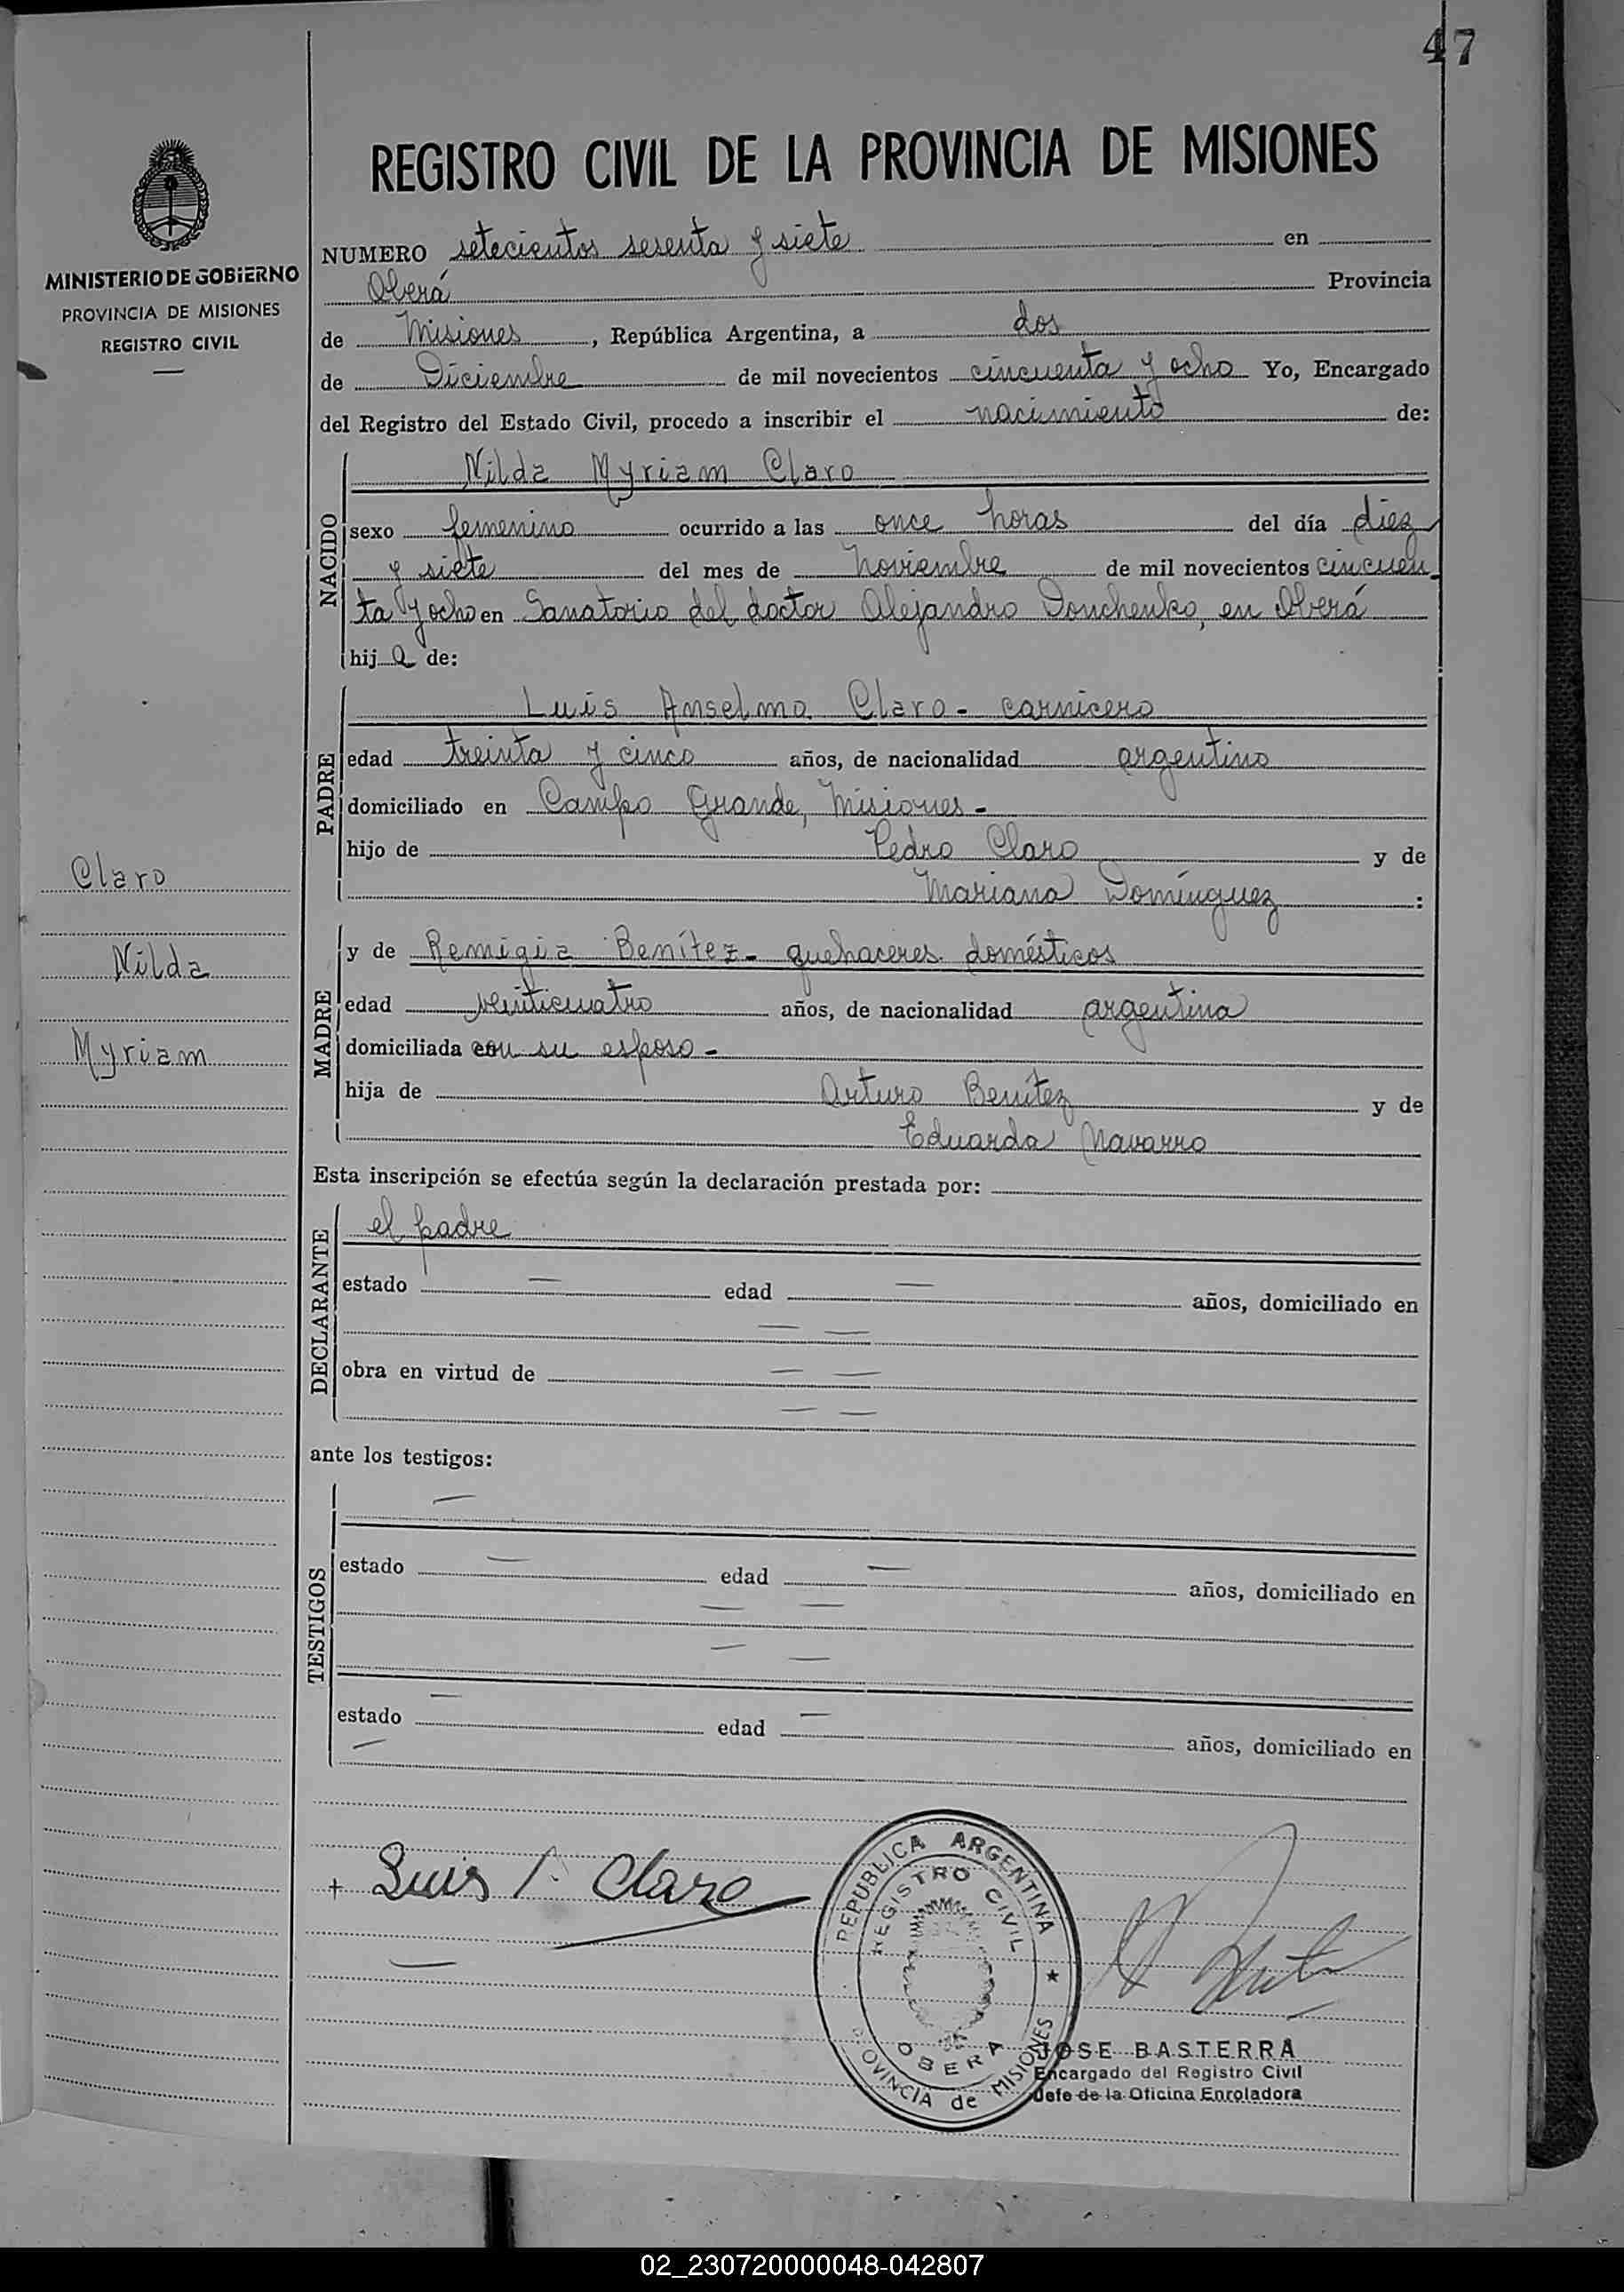 47
MINISTERIO DE GOBIERNO
PROVINCIA DE MISIONES
REGISTRO CIVIL
REGISTRO CIVIL DE LA PROVINCIA DE MISIONES
NUMERO setecientos sesenta y siete en
Oberá Provincia
de Misiones, República Argentina, a dos
de Diciembre de mil novecientos cincuenta y ocho Yo, Encargado
del Registro del Estado Civil, procedo a inscribir el nacimiento de:
NACIDO
Nilda Myriam Claro
sexo femenino ocurrido a las once horas del día diez
y siete del mes de Noviembre de mil novecientos cincuen
ta y ocho en Sanatorio del doctor Alejandro Donchenko, en Oberá
hija de:
PADRE
Luis Anselmo Claro - carnicero
edad treinta y cinco años, de nacionalidad argentino
domiciliado en Campo Grande, Misiones -
hijo de Pedro Claro y de
Mariana Domínguez :
MADRE
y de Remigia Benítez - quehaceres domésticos
edad veinticuatro años, de nacionalidad argentina
domiciliada con su esposo -
hija de Arturo Benítez y de
Eduarda Navarro
Claro
Nilda
Myriam
Esta inscripción se efectúa según la declaración prestada por:
DECLARANTE
el padre
estado — edad — años, domiciliado en
— —
obra en virtud de — —
— —
ante los testigos:
TESTIGOS
—
estado — edad — años, domiciliado en
— —
— —
estado — edad — años, domiciliado en
—
+ Luis A. Claro
REPUBLICA ARGENTINA
REGISTRO CIVIL
OBERA
PROVINCIA de MISIONES
JOSE BASTERRA
Encargado del Registro Civil
Jefe de la Oficina Enroladora
02_230720000048-042807